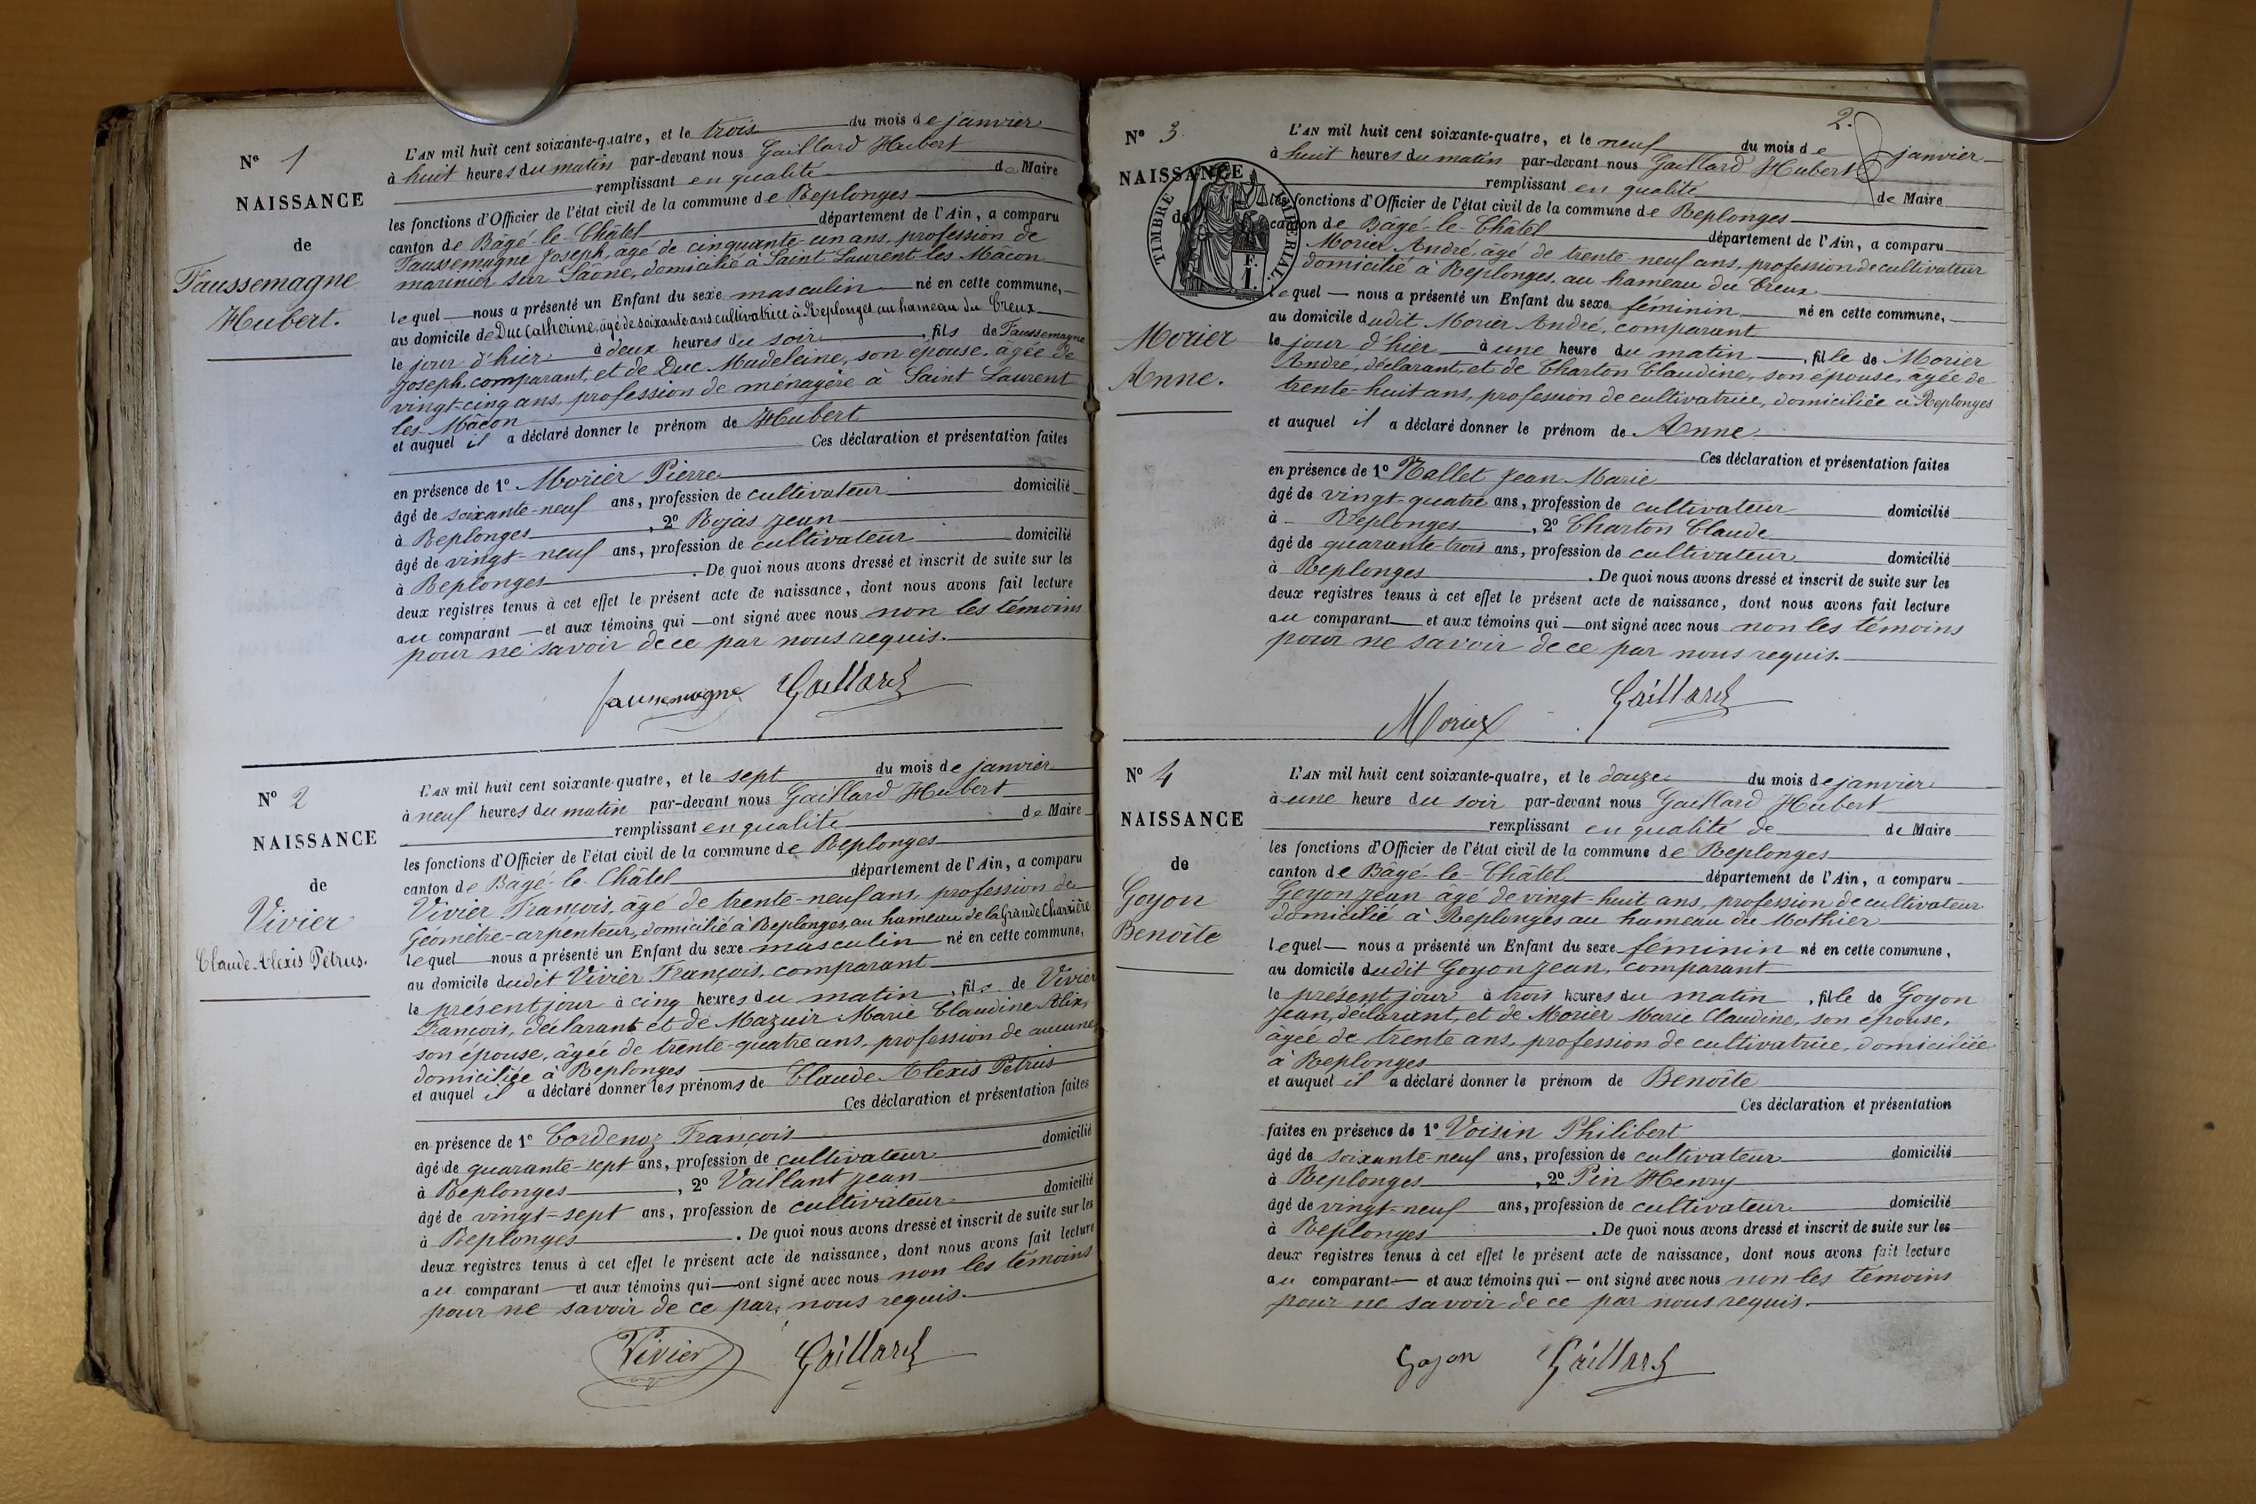 N° 1
NAISSANCE
de
Faussemagne
Hubert.
L'AN mil huit cent soixante-quatre, et le trois du mois de janvier
à huit heures du matin par-devant nous Gaillard Hubert
remplissant en qualité de Maire
les fonctions d'Officier de l'état civil de la commune de Replonges
canton de Bâgé-le-Châtel département de l'Ain, a comparu
Faussemagne Joseph, âgé de cinquante-un ans, profession de
marinier sur Saône, domicilié à Saint Laurent-les-Mâcon
lequel nous a présenté un Enfant du sexe masculin né en cette commune,
au domicile de Duc Catherine, âgé de soixante ans cultivatrice à Replonges au hameau du Creux
le jour d'hier à deux heures du soir, fils de Faussemagne
Joseph, comparant, et de Duc Madeleine, son épouse, âgée de
vingt-cinq ans, profession de ménagère à Saint Laurent
les-Mâcon
et auquel il a déclaré donner le prénom de Hubert
Ces déclaration et présentation faites
en présence de 1° Morier Pierre
âgé de soixante-neuf ans, profession de cultivateur domicilié
à Replonges, 2° Rojas Jean
âgé de vingt-neuf ans, profession de cultivateur domicilié
à Replonges. De quoi nous avons dressé et inscrit de suite sur les
deux registres tenus à cet effet le présent acte de naissance, dont nous avons fait lecture
au comparant et aux témoins qui ont signé avec nous non les témoins
pour ne savoir de ce par nous requis.
faussemagne Gaillard
N° 2
NAISSANCE
de
Vivier
Claude Alexis Pétrus.
L'AN mil huit cent soixante-quatre, et le sept du mois de janvier
à neuf heures du matin par-devant nous Gaillard Hubert
remplissant en qualité de Maire
les fonctions d'Officier de l'état civil de la commune de Replonges
canton de Bâgé-le-Châtel département de l'Ain, a comparu
Vivier François, âgé de trente-neuf ans, profession de
Géomètre-arpenteur, domicilié à Replonges, au hameau de la Grande Charrière
lequel nous a présenté un Enfant du sexe masculin né en cette commune,
au domicile dudit Vivier François, comparant
le présent jour à cinq heures du matin, fils de Vivier
François, déclarant et de Mazuir Marie Claudine Alix,
son épouse, âgée de trente-quatre ans, profession de aucune
domiciliée à Replonges
et auquel il a déclaré donner les prénoms de Claude Alexis Pétrus
Ces déclaration et présentation faites
en présence de 1° Cordenoz François
âgé de quarante-sept ans, profession de cultivateur domicilié
à Replonges, 2° Vaillant Jean
âgé de vingt-sept ans, profession de cultivateur domicilié
à Replonges. De quoi nous avons dressé et inscrit de suite sur les
deux registres tenus à cet effet le présent acte de naissance, dont nous avons fait lecture
au comparant et aux témoins qui ont signé avec nous non les témoins
pour ne savoir de ce par nous requis.
Vivier Gaillard
2.
N° 3
NAISSANCE
de
TIMBRE IMPERIAL
Morier
Anne.
L'AN mil huit cent soixante-quatre, et le neuf du mois de janvier
à huit heures du matin par-devant nous Gaillard Hubert
remplissant en qualité de Maire
les fonctions d'Officier de l'état civil de la commune de Replonges
canton de Bâgé-le-Châtel département de l'Ain, a comparu
Morier André, âgé de trente-neuf ans, profession de cultivateur
domicilié à Replonges, au hameau du Creux
lequel nous a présenté un Enfant du sexe féminin né en cette commune,
au domicile dudit Morier André, comparant
le jour d'hier à une heure du matin, fille de Morier
André, déclarant, et de Charton Claudine, son épouse, âgée de
trente-huit ans, profession de cultivatrice, domiciliée à Replonges
et auquel il a déclaré donner le prénom de Anne
Ces déclaration et présentation faites
en présence de 1° Nallet Jean Marie
âgé de vingt-quatre ans, profession de cultivateur domicilié
à Replonges, 2° Charton Claude
âgé de quarante-trois ans, profession de cultivateur domicilié
à Replonges. De quoi nous avons dressé et inscrit de suite sur les
deux registres tenus à cet effet le présent acte de naissance, dont nous avons fait lecture
au comparant et aux témoins qui ont signé avec nous non les témoins
pour ne savoir de ce par nous requis.
Morier Gaillard
N° 4
NAISSANCE
de
Goyon
Benoîte
L'AN mil huit cent soixante-quatre, et le douze du mois de janvier
à une heure du soir par-devant nous Gaillard Hubert
remplissant en qualité de de Maire
les fonctions d'Officier de l'état civil de la commune de Replonges
canton de Bâgé-le-Châtel département de l'Ain, a comparu
Goyon Jean âgé de vingt-huit ans, profession de cultivateur
domicilié à Replonges au hameau du Mothier
lequel nous a présenté un Enfant du sexe féminin né en cette commune,
au domicile dudit Goyon Jean, comparant
le présent jour à trois heures du matin, fille de Goyon
Jean, déclarant, et de Morier Marie Claudine, son épouse,
âgée de trente ans, profession de cultivatrice, domiciliée
à Replonges
et auquel il a déclaré donner le prénom de Benoîte
Ces déclaration et présentation
faites en présence de 1° Voisin Philibert
âgé de soixante-neuf ans, profession de cultivateur domicilié
à Replonges, 2° Pin Henry
âgé de vingt-neuf ans, profession de cultivateur domicilié
à Replonges. De quoi nous avons dressé et inscrit de suite sur les
deux registres tenus à cet effet le présent acte de naissance, dont nous avons fait lecture
au comparant et aux témoins qui ont signé avec nous non les témoins
pour ne savoir de ce par nous requis.
Goyon Gaillard